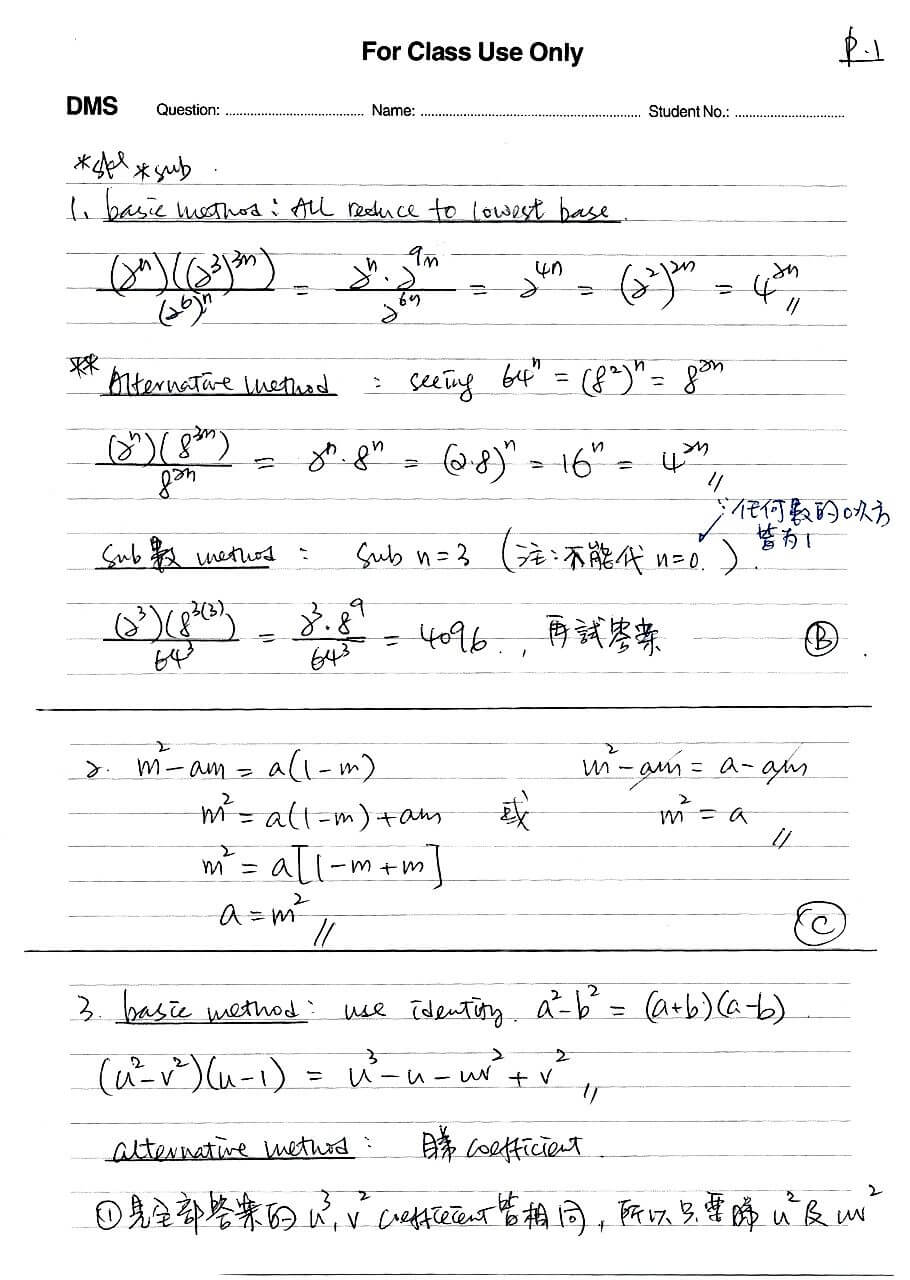 For Class Use Only
P.1
DMS Question: ........ Name: ........ Student No.: ........
*skl *sub.
1. basic method: All reduce to lowest base.
(2ⁿ)((2³)³ⁿ)/(2⁶)ⁿ = 2ⁿ·2⁹ⁿ/2⁶ⁿ = 2⁴ⁿ = (2²)²ⁿ = 4²ⁿ //
** Alternative method : seeing 64ⁿ = (8²)ⁿ = 8²ⁿ
(2ⁿ)(8³ⁿ)/8²ⁿ = 2ⁿ·8ⁿ = (2·8)ⁿ = 16ⁿ = 4²ⁿ //
∵任何數的0次方
皆為1
Sub數 method : Sub n=3 (注:不能代 n=0.).
(2³)(8³⁽³⁾)/64³ = 2³·8⁹/64³ = 4096., 再試答案 Ⓑ.
2. m²-am = a(1-m) m²-am = a-am
m² = a(1-m)+am 或 m² = a //
m² = a[1-m+m]
a = m² // Ⓒ
3. basic method: use identity. a²-b² = (a+b)(a-b)
(u²-v²)(u-1) = u³-u-uv²+v² //
alternative method : 睇 coefficient
① 見全部答案的 u³, v² coefficient 皆相同, 所以只要睇 u² 及 uv²